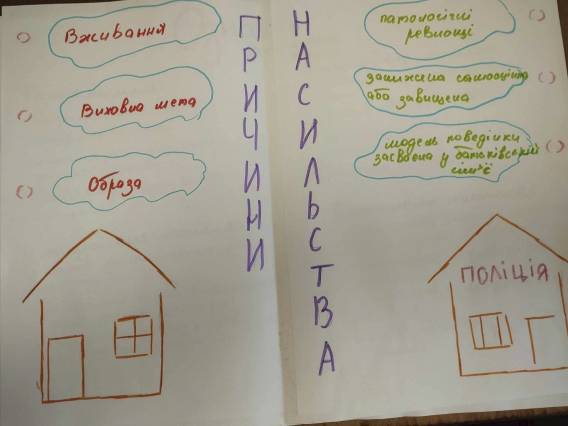 Вживання
Виховна мета
Образа
ПРИЧИНИ
НАСИЛЬСТВА
патологічні
ревнощі
занижена самооцінка
або завищена
модель поведінки
засвоєна у батьківській
сім'ї
ПОЛІЦІЯ